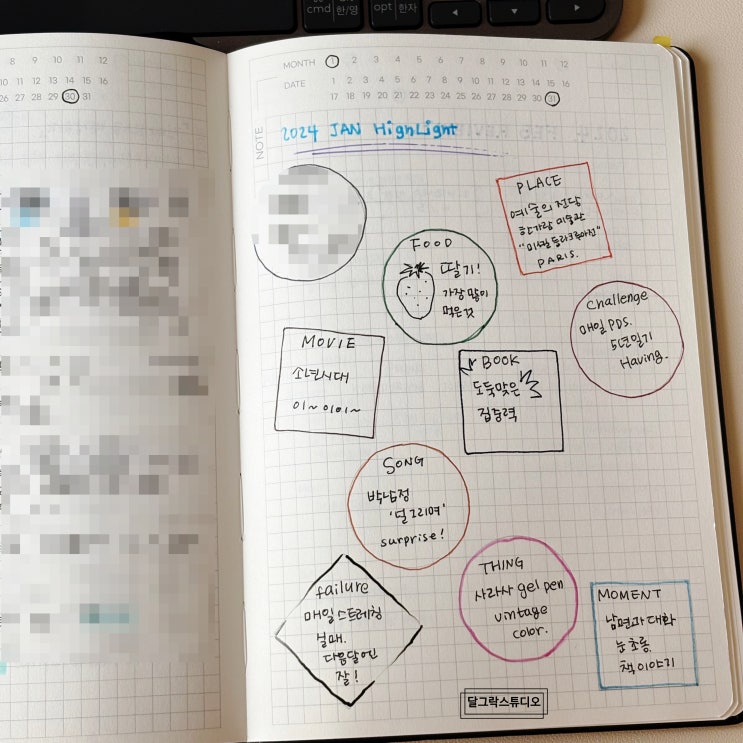 cmd 한/영 opt 한자
8 9 10 11 12
10 11 12 13 14 15 16
26 27 28 29 30 31
MONTH 1 2 3 4 5 6 7 8 9 10 11 12
DATE 1 2 3 4 5 6 7 8 9 10 11 12 13 14 15 16
17 18 19 20 21 22 23 24 25 26 27 28 29 30 31
NOTE
2024 JAN HighLight
PLACE
예술의 전당
한가람 미술관
"미셸 들라크루아전"
PARIS.
FOOD
딸기!
가장 많이
먹은 것
Challenge
매일 PDS.
5년일기
Having.
MOVIE
소년시대
이~이이~
BOOK
도둑맞은
집중력
SONG
박남정
'널 그리며'
surprise!
failure
매일 스트레칭
실패.
다음달엔
잘!
THING
사라사 gel pen
vintage
color.
MOMENT
남편과 대화
눈 초롱.
책 이야기
달그락스튜디오